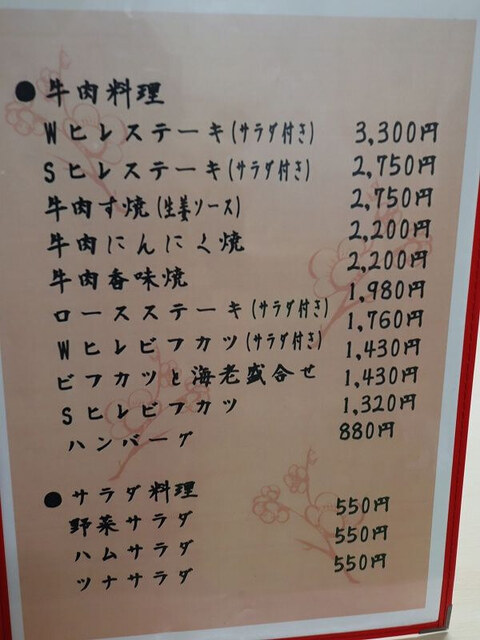 ●牛肉料理
Wヒレステーキ(サラダ付き)
Sヒレステーキ(サラダ付き)
牛肉す焼(生姜ソース)
牛肉にんにく焼
牛肉香味焼
ロースステーキ(サラダ付き)
Wヒレビフカツ(サラダ付き)
ビフカツと海老盛合せ
Sヒレビフカツ
ハンバーグ
3,300円
2,750円
2,750円
2,200円
2,200円
1,980円
1,760円
1,430円
1,430円
1,320円
880円
●サラダ料理
野菜サラダ
ハムサラダ
ツナサラダ
550円
550円
550円